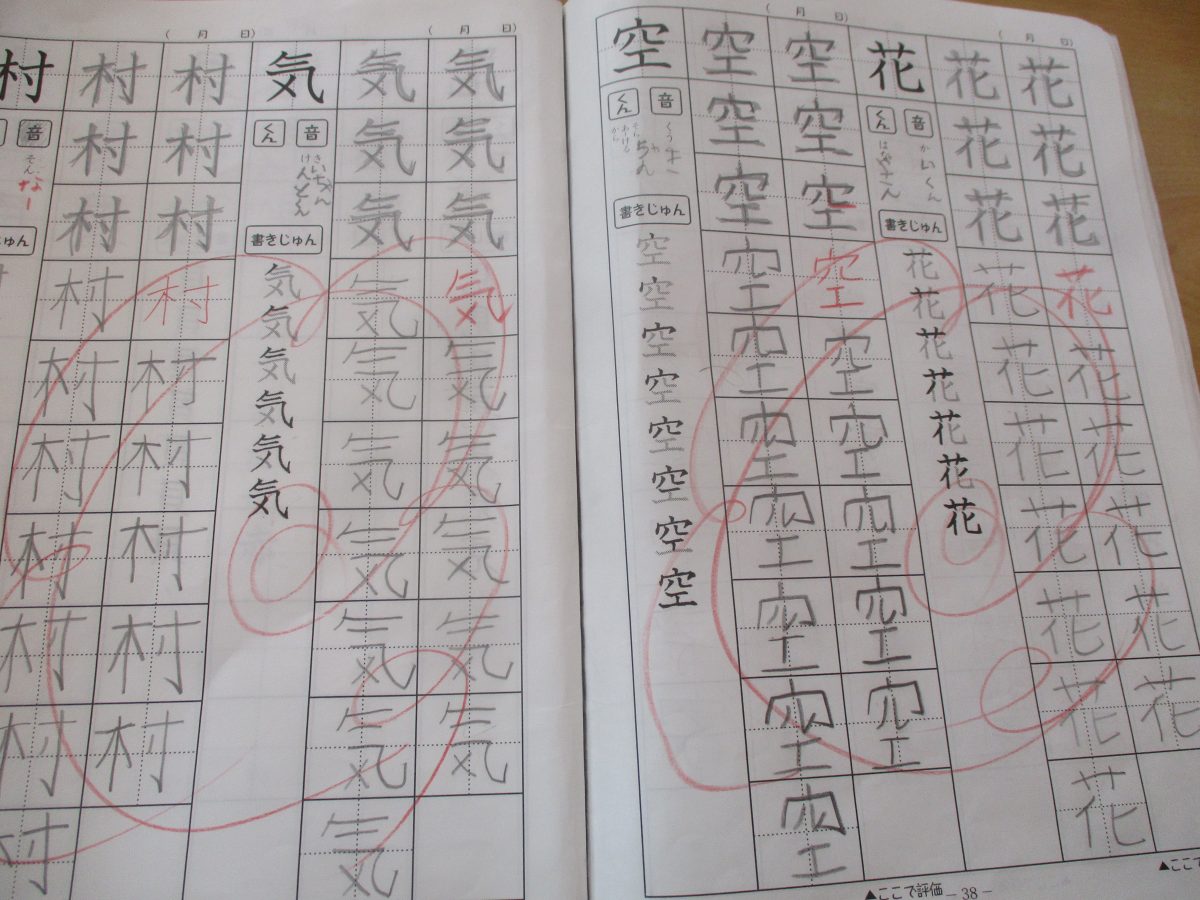 ( 月 日)
( 月 日)
村
音
そん
なー
じゅん
村村村村村村村村村村
村村村村村村村村村
気
くん 音
書きじゅん
気気気気気気
気気気気気気気気気気
気気気気気気気気気
( 月 日)
( 月 日)
空
くん 音
書きじゅん
空空空空空空空空
空空空空空空空空空空
空空空空空空空空空
花
くん 音
書きじゅん
花花花花花花花
花花花花花花花花花花
花花花花花花花花花
▲ここで評価
- 38 -
▲ここで